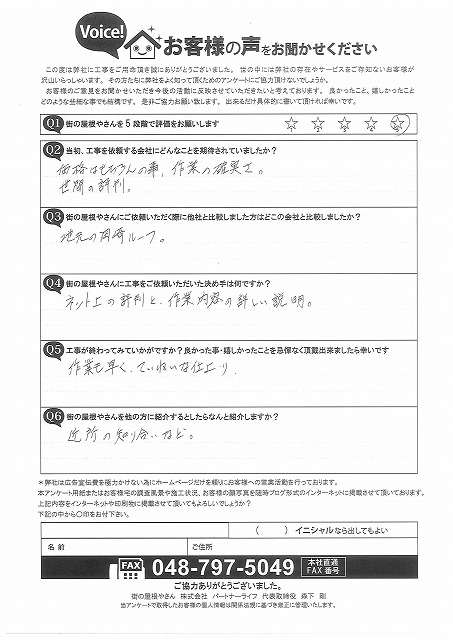 Voice!
お客様の声をお聞かせください
この度は弊社に工事をご用命頂き誠にありがとうございます。世の中には弊社の存在やサービスをご存知ないお客様が
沢山いらっしゃいます。その方たちに弊社をよく知って頂くためのアンケートにご協力頂けないでしょうか。
お客様のご意見をお聞かせいただき今後の活動に反映させていただきたいと考えております。良かったこと、嬉しかったこと
どのような些細な事でも結構です。是非ご協力お願い致します。出来るだけ具体的に書いて頂ければ幸いです。
Q1 街の屋根やさんを5段階で評価をお願いします ☆ ☆ ☆ ☆ ☆
Q2 当初、工事を依頼する会社にどんなことを期待されていましたか?
価格はもちろんの事、作業の確実さ。
世間の評判。
Q3 街の屋根やさんにご依頼いただく際に他社と比較しました方はどこの会社と比較しましたか?
地元の岡崎ルーフ。
Q4 街の屋根やさんに工事をご依頼いただいた決め手は何ですか?
ネット上の評判と、作業内容の詳しい説明。
Q5 工事が終わってみていかがですか?良かった事・嬉しかったことを忌憚なく頂戴出来ましたら幸いです
作業も早く、ていねいな仕上り
Q6 街の屋根やさんを他の方に紹介するとしたらなんと紹介しますか?
近所の知り合いなど。
*弊社は広告宣伝費を極力かけない為にホームページだけを頼りにお客様への営業活動を行っております。
本アンケート用紙またはお客様宅の調査風景や施工状況、お客様の顔写真を随時ブログ形式のインターネットに掲載させて頂いております。
上記内容をインターネットや印刷物に掲載させて頂いてもよろしいでしょうか?
下記の中から○印をお付け下さい。
( ) イニシャルなら出してもよい
名 前
ご住所
FAX 048-797-5049 本社直通
FAX 番号
ご協力ありがとうございました。
街の屋根やさん 株式会社 パートナーライフ 代表取締役 森下 剛
当アンケートで取得したお客様の個人情報は関係法規に基づき厳正に管理いたします。